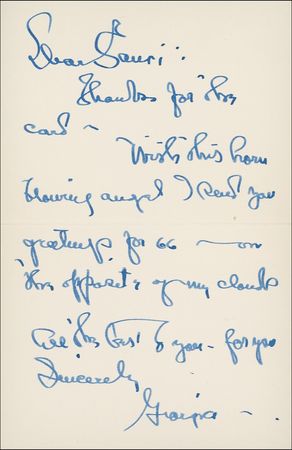 Dear
Thanks for the
card –
With this horn
blowing angel I send you
greetings for 66 — on
the opposite of my clouds
All the best to you – for you
Sincerely
Georgia –